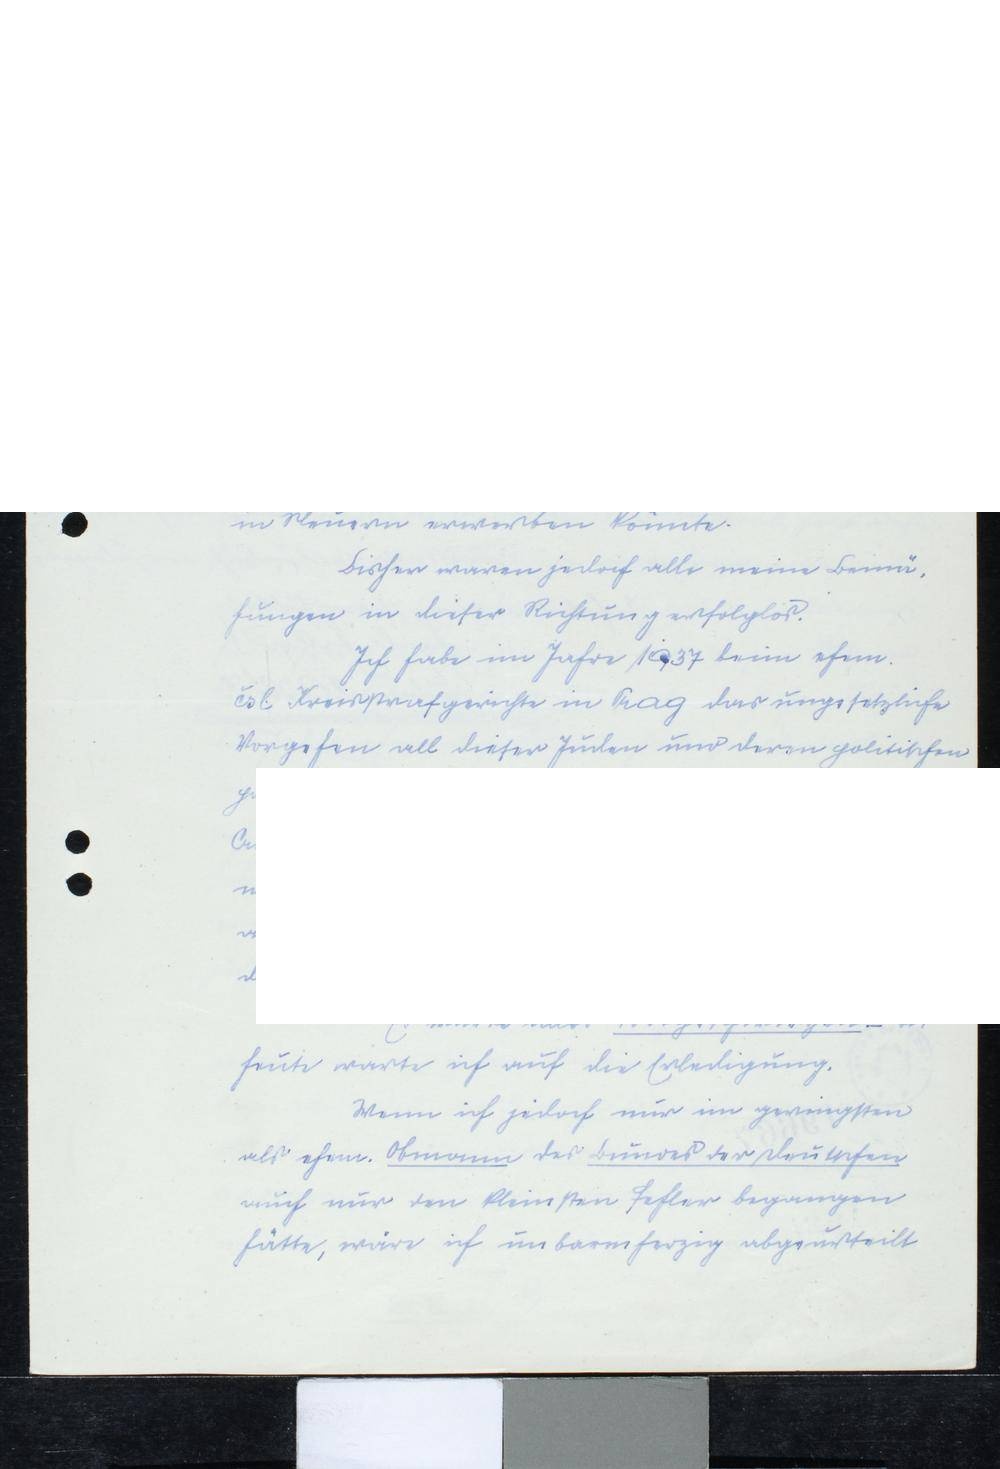 in Steuern erwerben könnte.
Bisher waren jedoch alle meine Bemü-
hungen in dieser Richtung erfolglos.
Ich habe im Jahre 1937 beim ehem.
čsl. Kreisstrafgerichte in Prag das ungesetzliche
Vorgehen all dieser Juden und deren politischen
heute warte ich auf die Erledigung.
Wenn ich jedoch nur im geringsten
als ehem. Obmann des Bundes der Deutschen
auch nur den kleinsten Fehler begangen
hätte, wäre ich unbarmherzig abgeurteilt